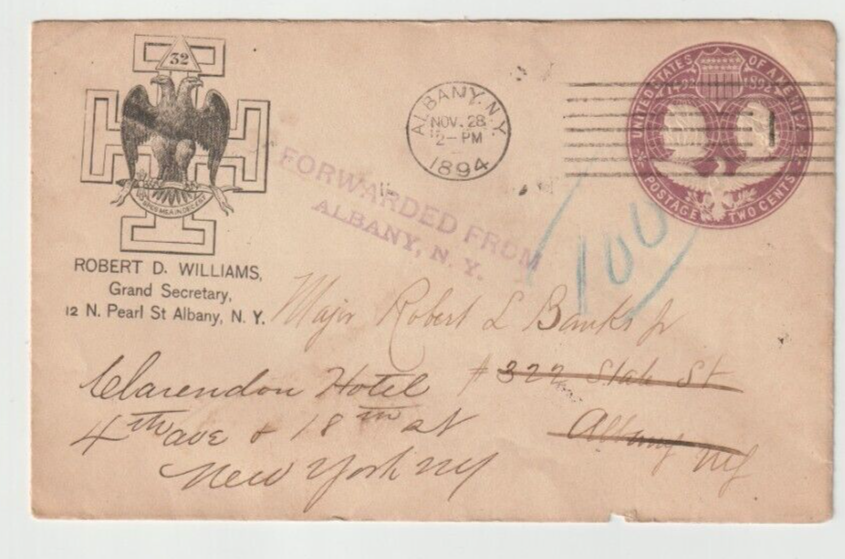 32
SPES MEA IN DEO EST
ROBERT D. WILLIAMS,
Grand Secretary,
12 N. Pearl St Albany, N. Y.
ALBANY, N.Y.
NOV. 28
2-PM
1894
UNITED STATES OF AMERICA
1492 1892
POSTAGE TWO CENTS
FORWARDED FROM
ALBANY, N. Y.
100
Major Robert L Banks Jr
# 322 State St
Albany NY
Clarendon Hotel
4th ave & 18th st
New York NY